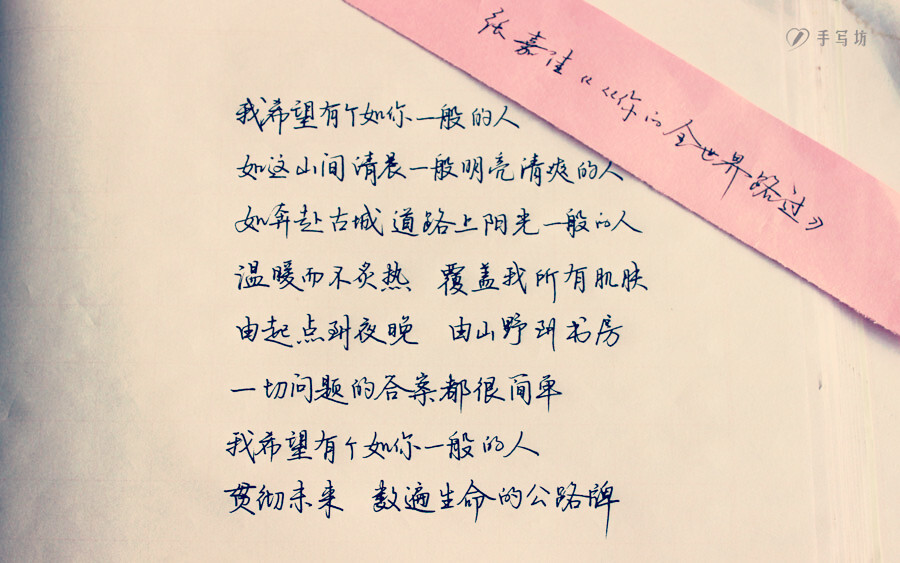 手写坊
张嘉佳《《你的全世界路过》
我希望有个如你一般的人
如这山间清晨一般明亮清爽的人
如奔赴古城 道路上阳光一般的人
温暖而不炙热 覆盖我所有肌肤
由起点到夜晚 由山野到书房
一切问题的答案都很简单
我希望有个如你一般的人
贯彻未来 数遍生命的公路牌